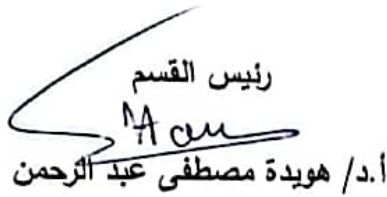 رئيس القسم
أ.د/ هويدة مصطفى عبد الرحمن